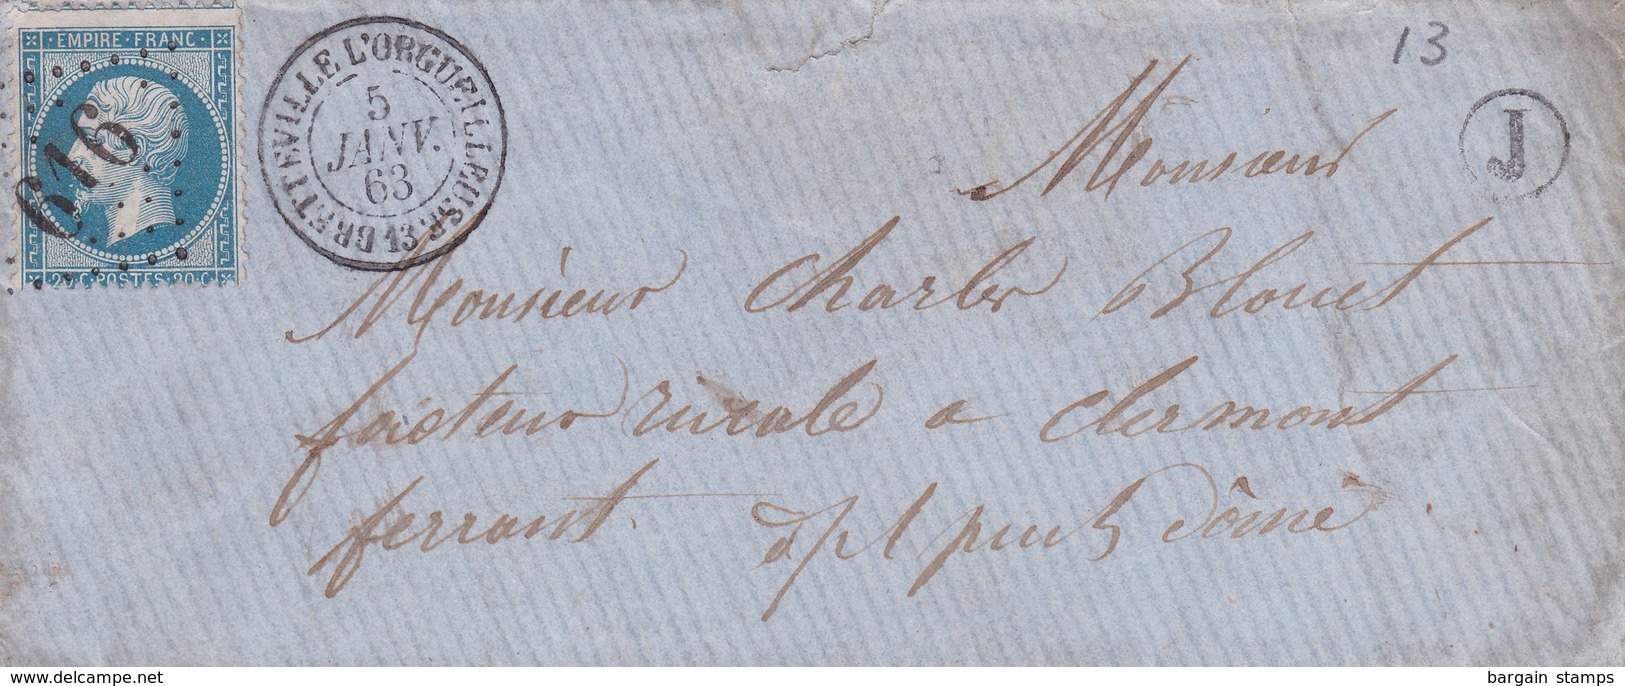 EMPIRE·FRANC·
616
20·C·POSTES·20·C·
BRETTEVILLE L'ORGUEILLEUSE 13
5
JANV.
63
13
J
Monsieur
Monsieur Charles Blouet
facteur rurale a Clermont
ferrant. dpt puy Dôme
bargain stamps